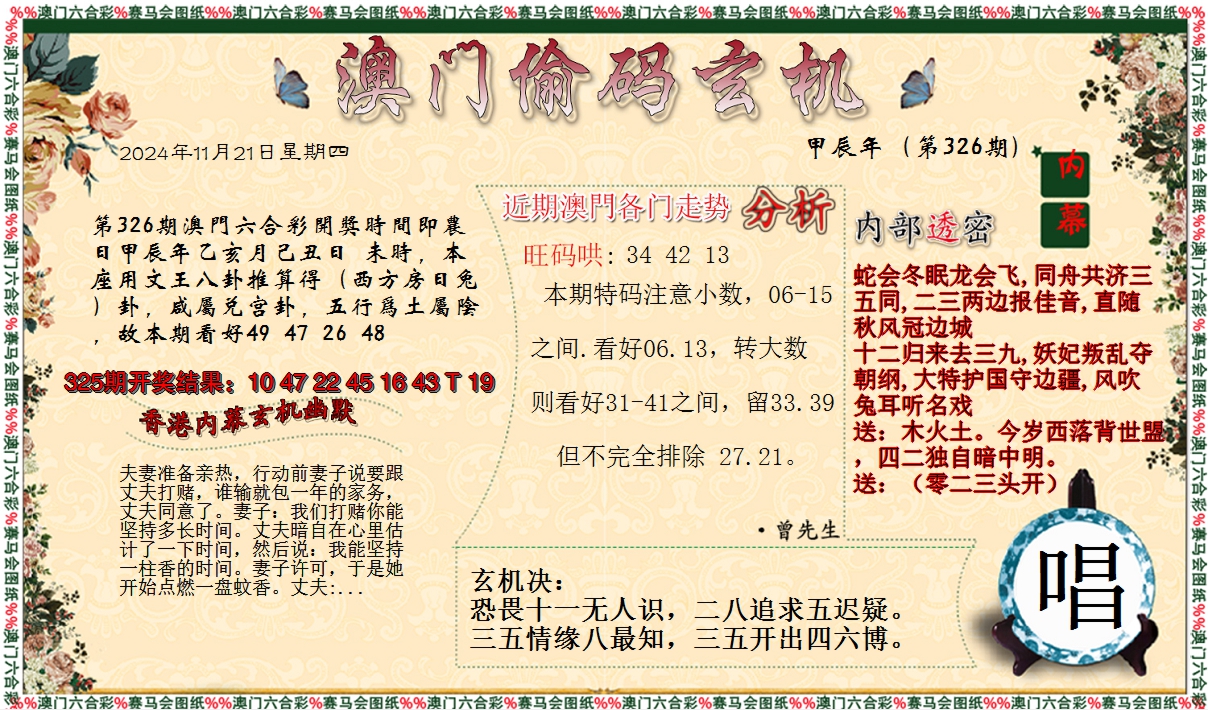 %%澳门六合彩%赛马会图纸%%澳门六合彩%赛马会图纸%%澳门六合彩%赛马会图纸%%澳门六合彩%赛马会图纸%%澳门六合彩%赛马会图纸%%澳门六合彩%赛马会图纸%%
澳门偷码玄机
2024年11月21日星期四
甲辰年（第326期）
内
幕
第326期澳門六合彩開獎時間即農
日甲辰年乙亥月己丑日 未時，本
座用文王八卦推算得（西方房日兔
）卦，咸屬兑宫卦，五行爲土屬陰
，故本期看好49 47 26 48
325期开奖结果：10 47 22 45 16 43 T 19
香港内幕玄机幽默
夫妻准备亲热，行动前妻子说要跟
丈夫打赌，谁输就包一年的家务，
丈夫同意了。妻子：我们打赌你能
坚持多长时间。丈夫暗自在心里估
计了一下时间，然后说：我能坚持
一柱香的时间。妻子许可，于是她
开始点燃一盘蚊香。丈夫:...
近期澳門各门走势 分析
旺码哄: 34 42 13
本期特码注意小数，06-15
之间.看好06.13，转大数
则看好31-41之间，留33.39
但不完全排除 27.21。
·曾先生
内部透密
蛇会冬眠龙会飞,同舟共济三
五同,二三两边报佳音,直随
秋风冠边城
十二归来去三九,妖妃叛乱夺
朝纲,大特护国守边疆,风吹
兔耳听名戏
送：木火土。今岁西落背世盟
，四二独自暗中明。
送：（零二三头开）
玄机决：
恐畏十一无人识，二八追求五迟疑。
三五情缘八最知，三五开出四六博。
唱
%%澳门六合彩%赛马会图纸%%澳门六合彩%赛马会图纸%%澳门六合彩%赛马会图纸%%澳门六合彩%赛马会图纸%%澳门六合彩%赛马会图纸%%澳门六合彩%赛马会图纸%%
%%澳门六合彩%赛马会图纸%%澳门六合彩%赛马会图纸%%澳门六合彩%赛马会图纸%%澳门六合彩
%%澳门六合彩%赛马会图纸%%澳门六合彩%赛马会图纸%%澳门六合彩%赛马会图纸%%澳门六合彩